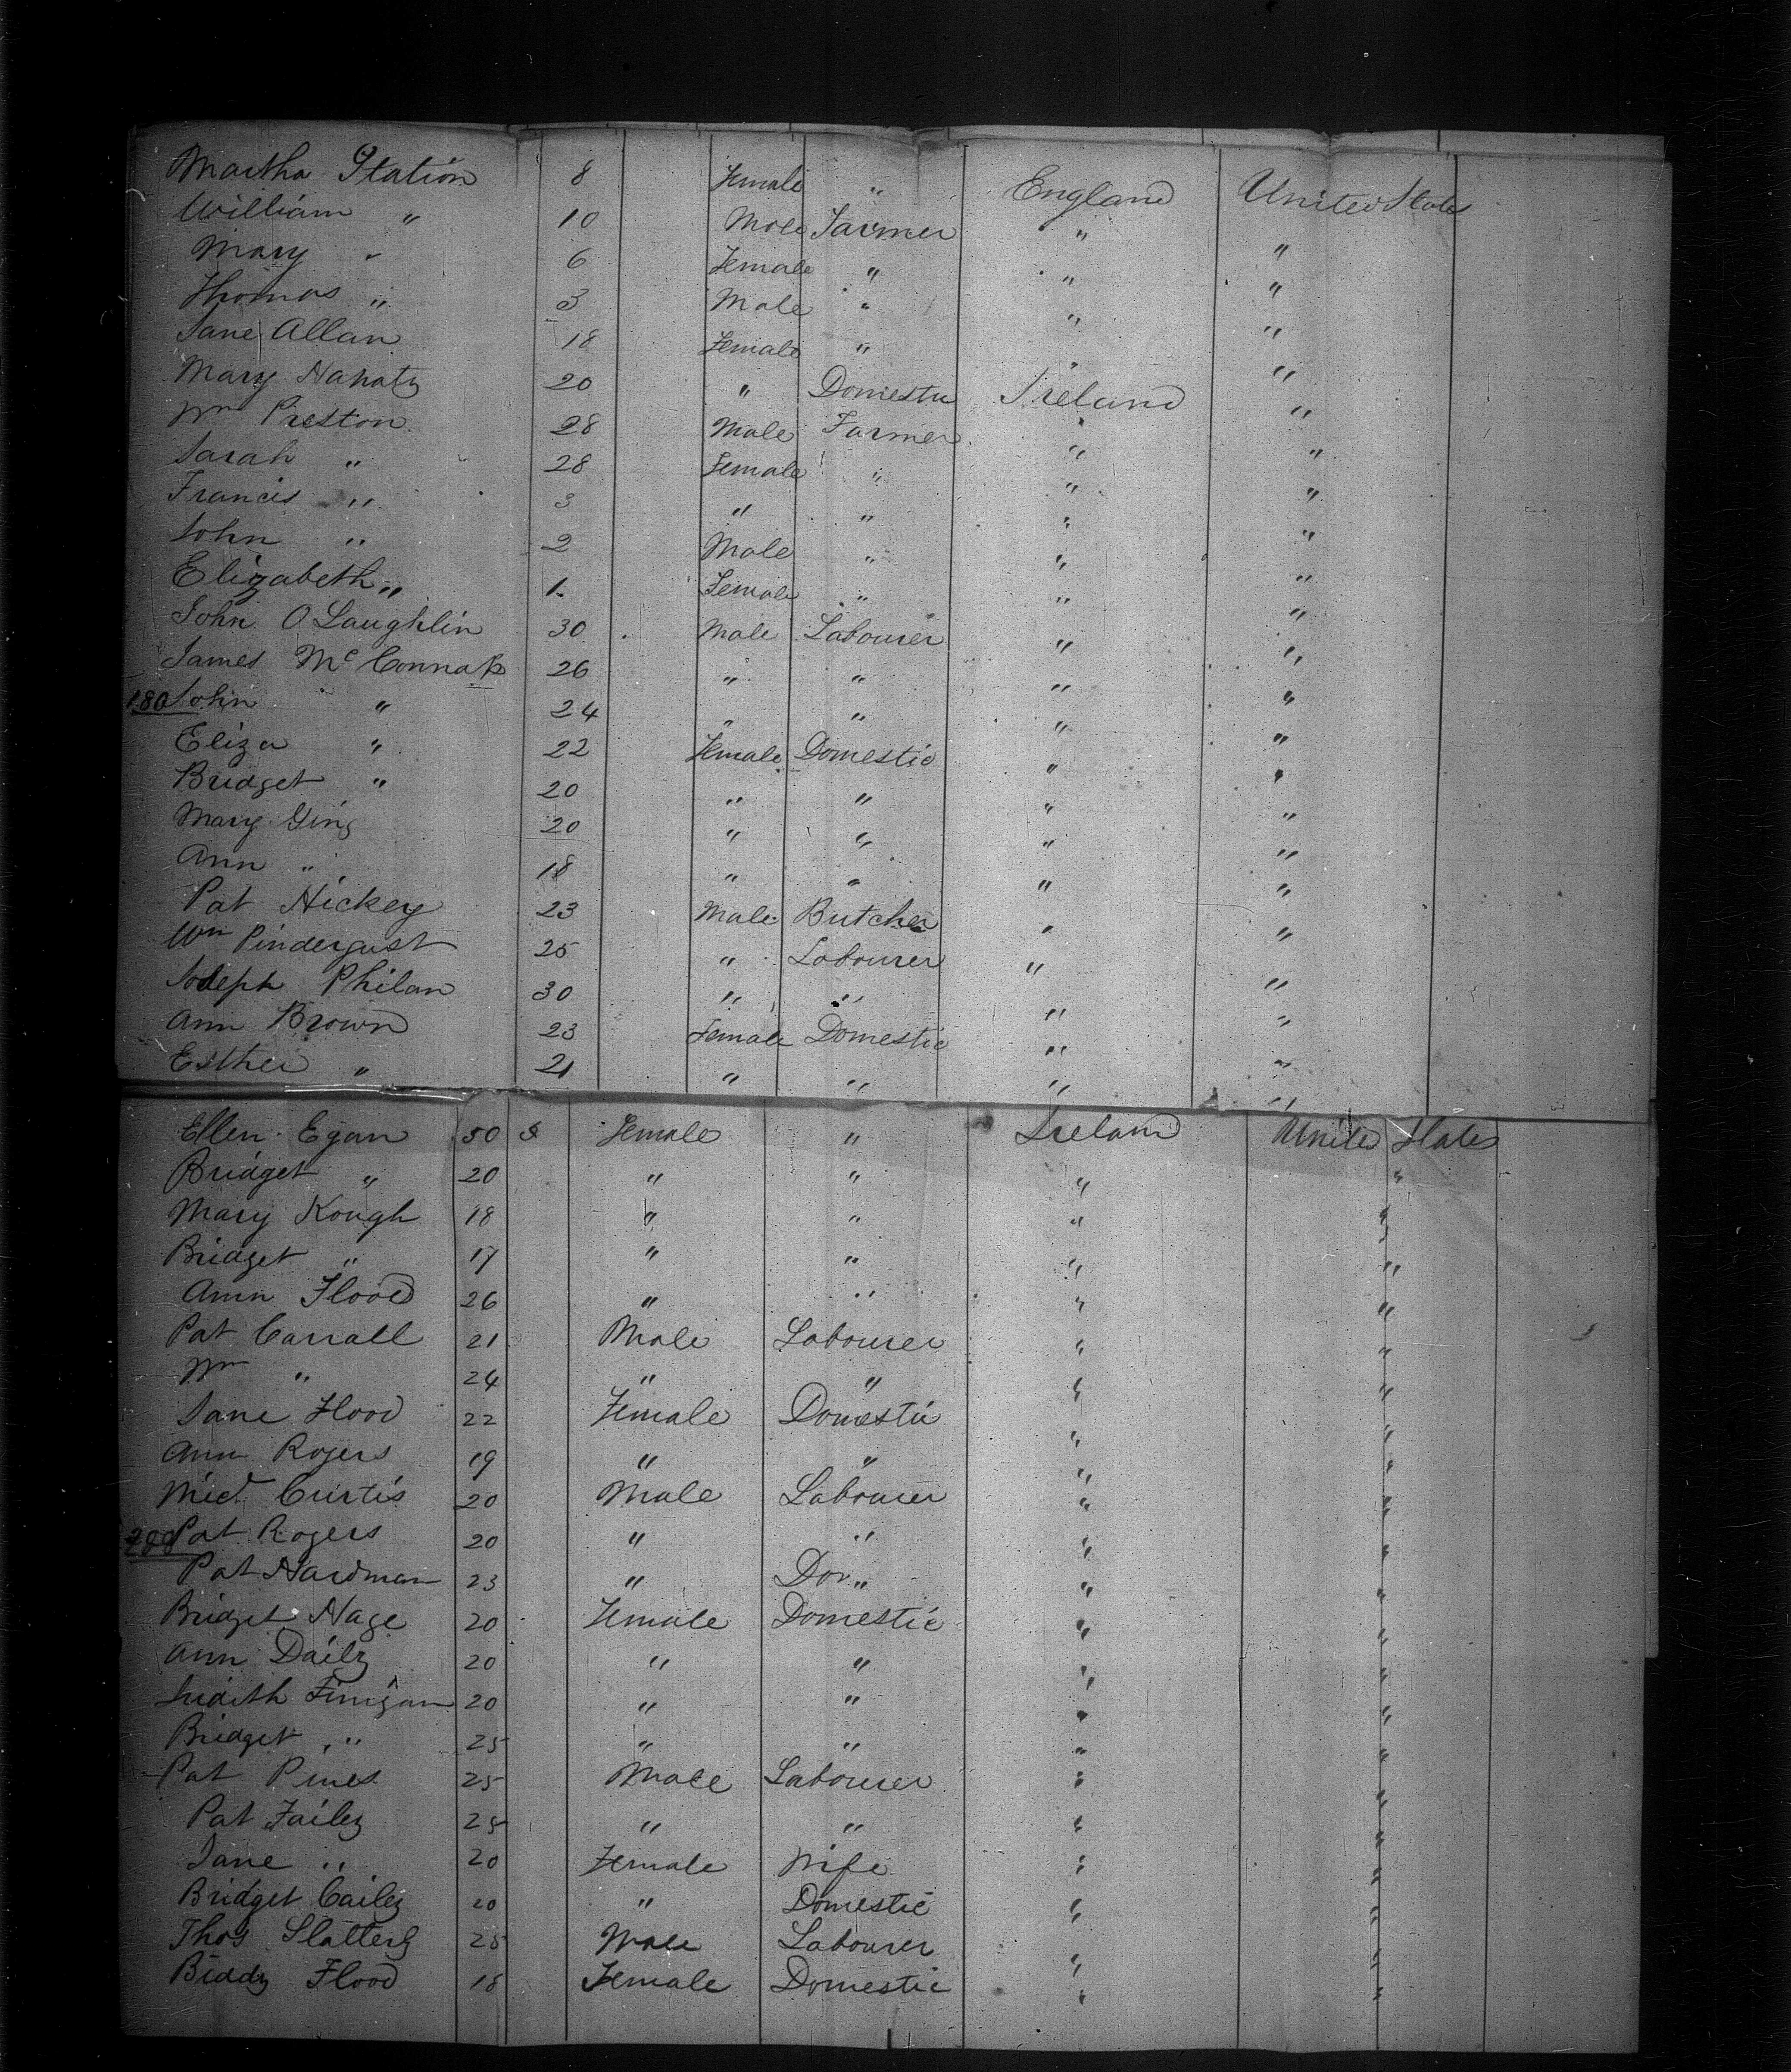 Martha Station 8 Female " England United States
William " 10 Male Farmer " "
Mary " 6 Female " " "
Thomas " 3 Male " " "
Jane Allan 18 Female " " "
Mary 20 " Domestic Ireland "
Wm Preston 28 Male Farmer " "
Sarah " 28 Female " " "
Francis " 3 " " " "
John " 2 Male " " "
Elizabeth " 1 Female " " "
John O Laughlin 30 Male Labourer " "
James 26 " " " "
180 John " 24 " " " "
Eliza " 22 Female Domestic " "
Bridget " 20 " " " "
Mary Ging 20 " " " "
Ann " 18 " " " "
Pat Hickey 23 Male Butcher " "
Wm Pindergast 25 " Labourer " "
Joseph Philan 30 " " " "
Ann Brown 23 Female Domestic " "
Esther " 21 " " " "
Ellen Egan 50 Female " Ireland United States
Bridget " 20 " " " "
Mary Kough 18 " " " "
Bridget " 17 " " " "
Ann Flood 26 " " " "
Pat Carrall 21 Male Labourer " "
Wm " 24 " " " "
Jane Flood 22 Female Domestic " "
Ann Rogers 19 " " " "
Micl Curtis 20 Male Labourer " "
200 Pat Rogers 20 " " " "
Pat Hardman 23 " Do " " "
Bridget Nage 20 Female Domestic " "
Ann Daily 20 " " " "
Judith Finigan 20 " " " "
Bridget " 25 " " " "
Pat Pines 25 Male Labourer " "
Pat Failey 25 " " " "
Jane " 20 Female Wife " "
Bridget Cailey 20 " Domestic " "
Thos Slattery 25 Male Labourer " "
Biddy Flood 18 Female Domestic " "